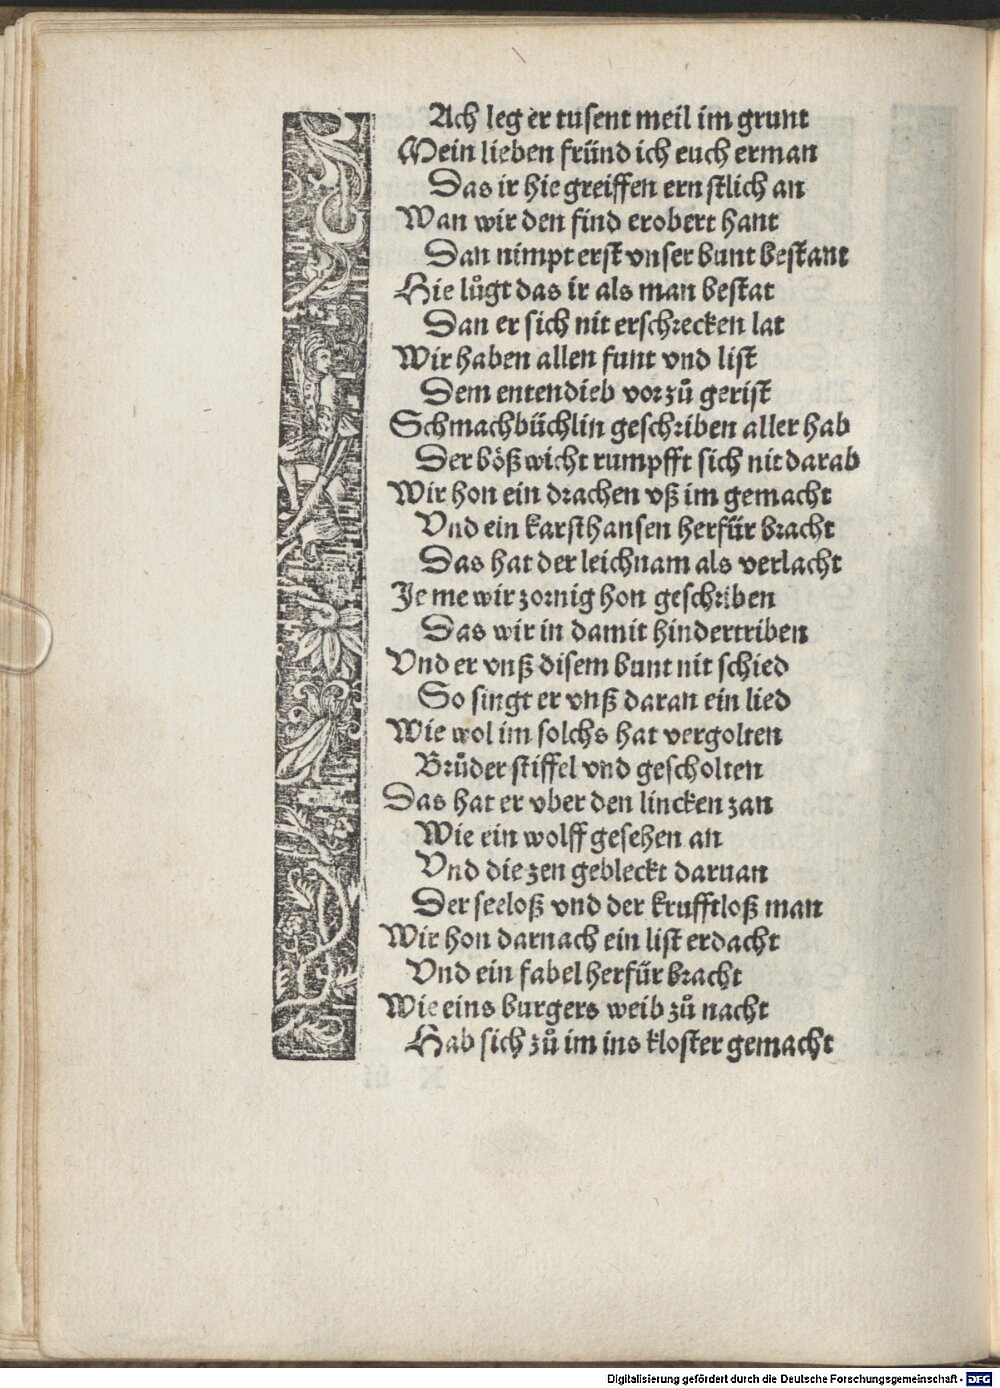 Ach leg er tusent meil im grunt
Mein lieben fründ ich euch erman
Das ir hie greiffen ernstlich an
Wan wir den find erobert hant
Dan nimpt erst vnser bunt bestant
Hie lůgt das ir als man bestat
Dan er sich nit erschrecken lat
Wir haben allen funt vnd list
Dem entendieb vor zů gerist
Schmachbüchlin geschriben aller hab
Der bößwicht rumpfft sich nit darab
Wir hon ein drachen vß im gemacht
Vnd ein karsthansen herfür bracht
Das hat der leichnam als verlacht
Je me wir zornig hon geschriben
Das wir in damit hindertriben
Vnd er vnß disem bunt nit schied
So singt er vnß daran ein lied
Wie wol im solchs hat vergolten
Brůder stiffel vnd gescholten
Das hat er vber den lincken zan
Wie ein wolff gesehen an
Vnd die zen gebleckt daruan
Der seeloß vnd der krufftloß man
Wir hon darnach ein list erdacht
Vnd ein fabel herfür bracht
Wie eins burgers weib zů nacht
Hab sich zů im ins kloster gemacht
Digitalisierung gefördert durch die Deutsche Forschungsgemeinschaft - DFG